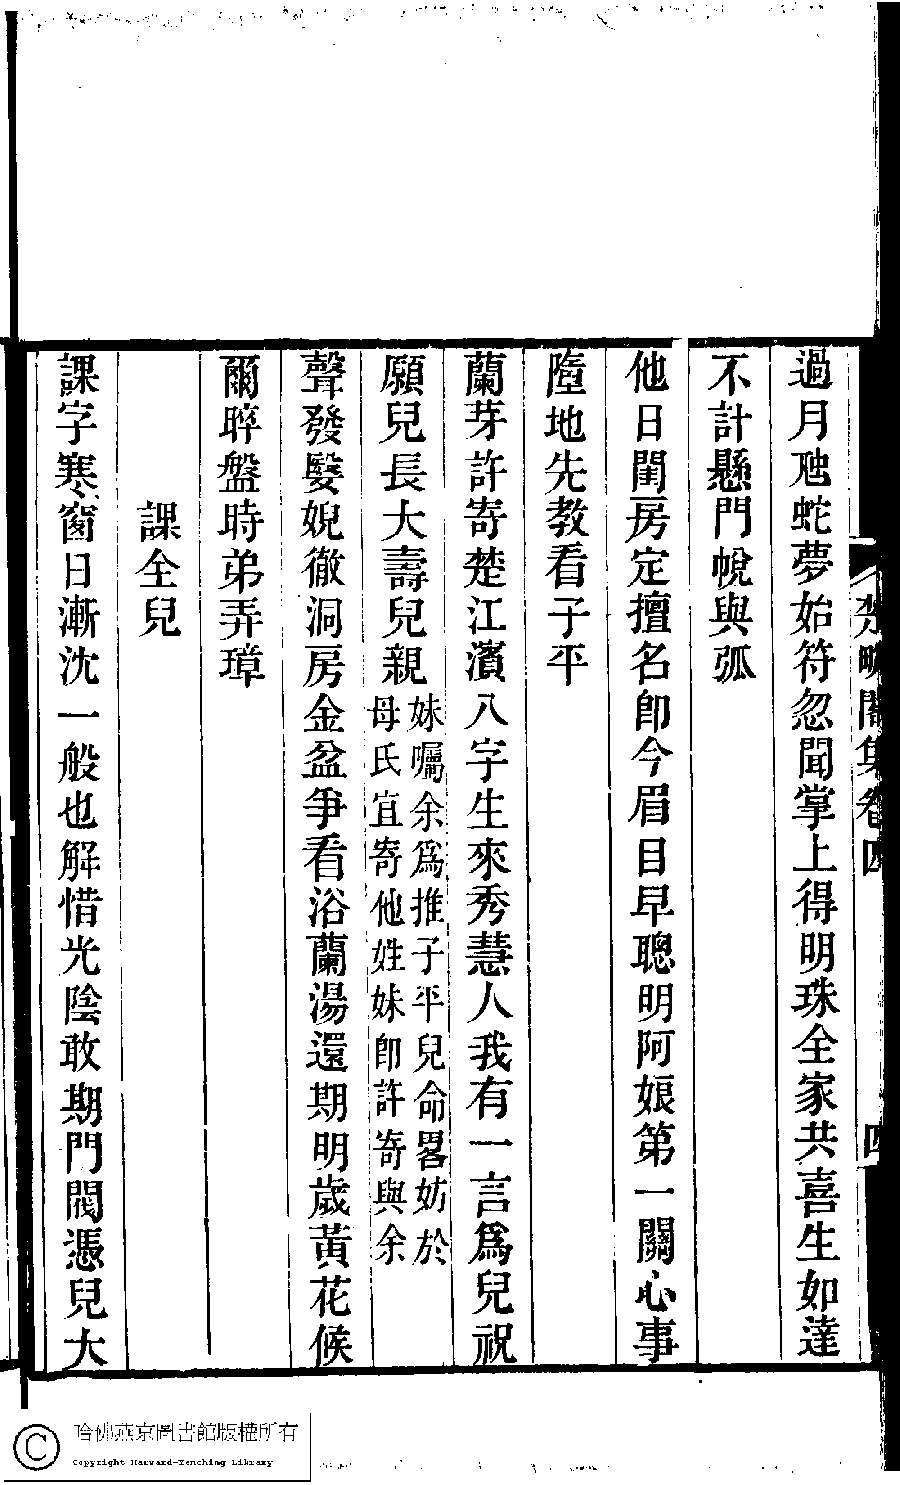 楚畹閣集卷四 四
過月虺蛇夢始符忽聞掌上得明珠全家共喜生如達
不計懸門帨與弧
他日閨房定擅名卽今眉目早聰明阿娘第一關心事
墮地先教看子平
蘭芽許寄楚江濱八字生來秀慧人我有一言爲兒祝
願兒長大壽兒親
妹囑余爲推子平兒命畧妨於
母氏宜寄他姓妹卽許寄與余
聲發嫛婗徹洞房金盆爭看浴蘭湯還期明歲黃花候
爾晬盤時弟弄璋
課全兒
課字寒窗日漸沈一般也解惜光陰敢期門閥憑兒大
哈佛燕京圖書館版權所有
Copyright Harvard-Yenching Library